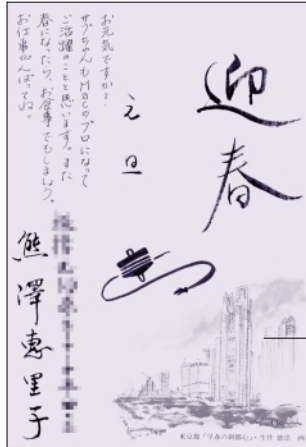 迎春
元旦
お元気ですか?
サブちゃんもMacのプロになって
ご活躍のことと思います。また
春になったら、お食事でもしましょう。
お仕事がんばってね。
熊澤恵里子
東京都「早春の新都心」・生井 巌